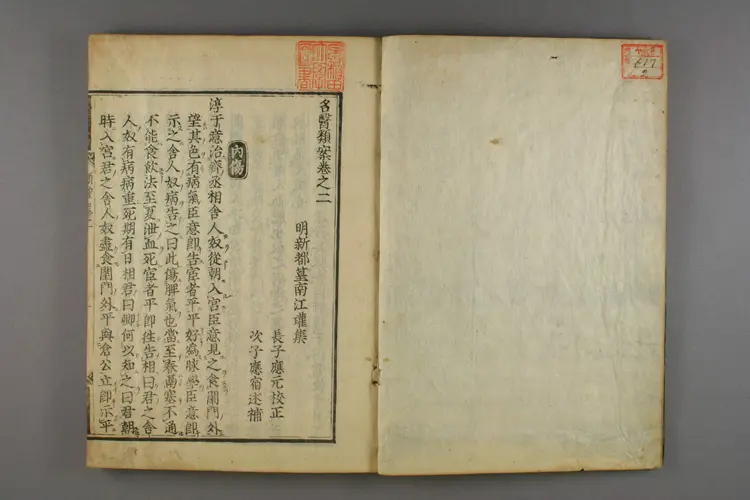 名醫類案卷之二
明新都篁南江瓘集
長子應元校正
次子應宿述補
内傷
淳于意治齊丞相舍人奴從朝入宮臣意見之食閨門外
望其色有病氣臣意卽告宦者平平好爲脉學臣意卽
示之舍人奴病告之曰此傷脾氣也當至春鬲塞不通
不能食飲法至夏泄血死宦者平卽徃告相曰君之舍
人奴有病病重死期有日相君曰卿何以知之曰君朝
時入宮君之舍人奴盡食閨門外平與倉公立卽示平
617